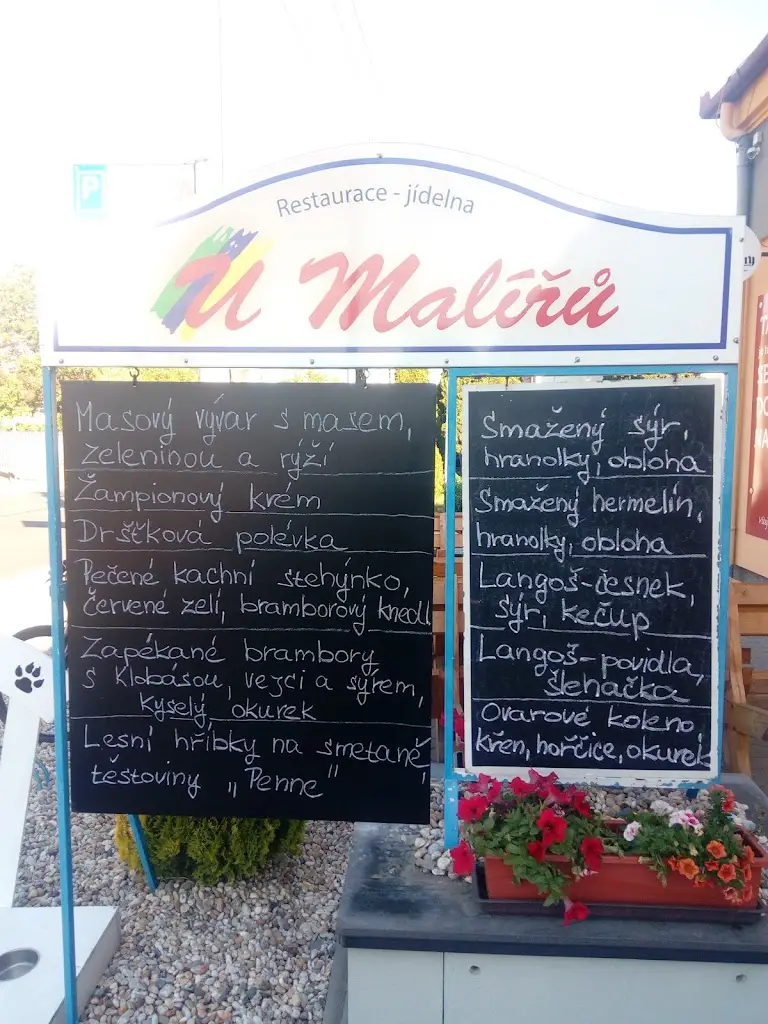 P
Restaurace - jídelna
U Malířů
Masový vývar s masem,
zeleninou a rýží
Žampionový krém
Dršťková polévka
Pečené kachní stehýnko,
červené zelí, bramborový knedl
Zapékané brambory
s klobásou, vejci a sýrem,
kyselý okurek
Lesní hříbky na smetaně,
těstoviny „Penne"
Smažený sýr,
hranolky, obloha
Smažený hermelín,
hranolky, obloha
Langoš-česnek,
sýr, kečup
Langoš-povidla,
šlehačka
Ovarové koleno
křen, hořčice, okurek